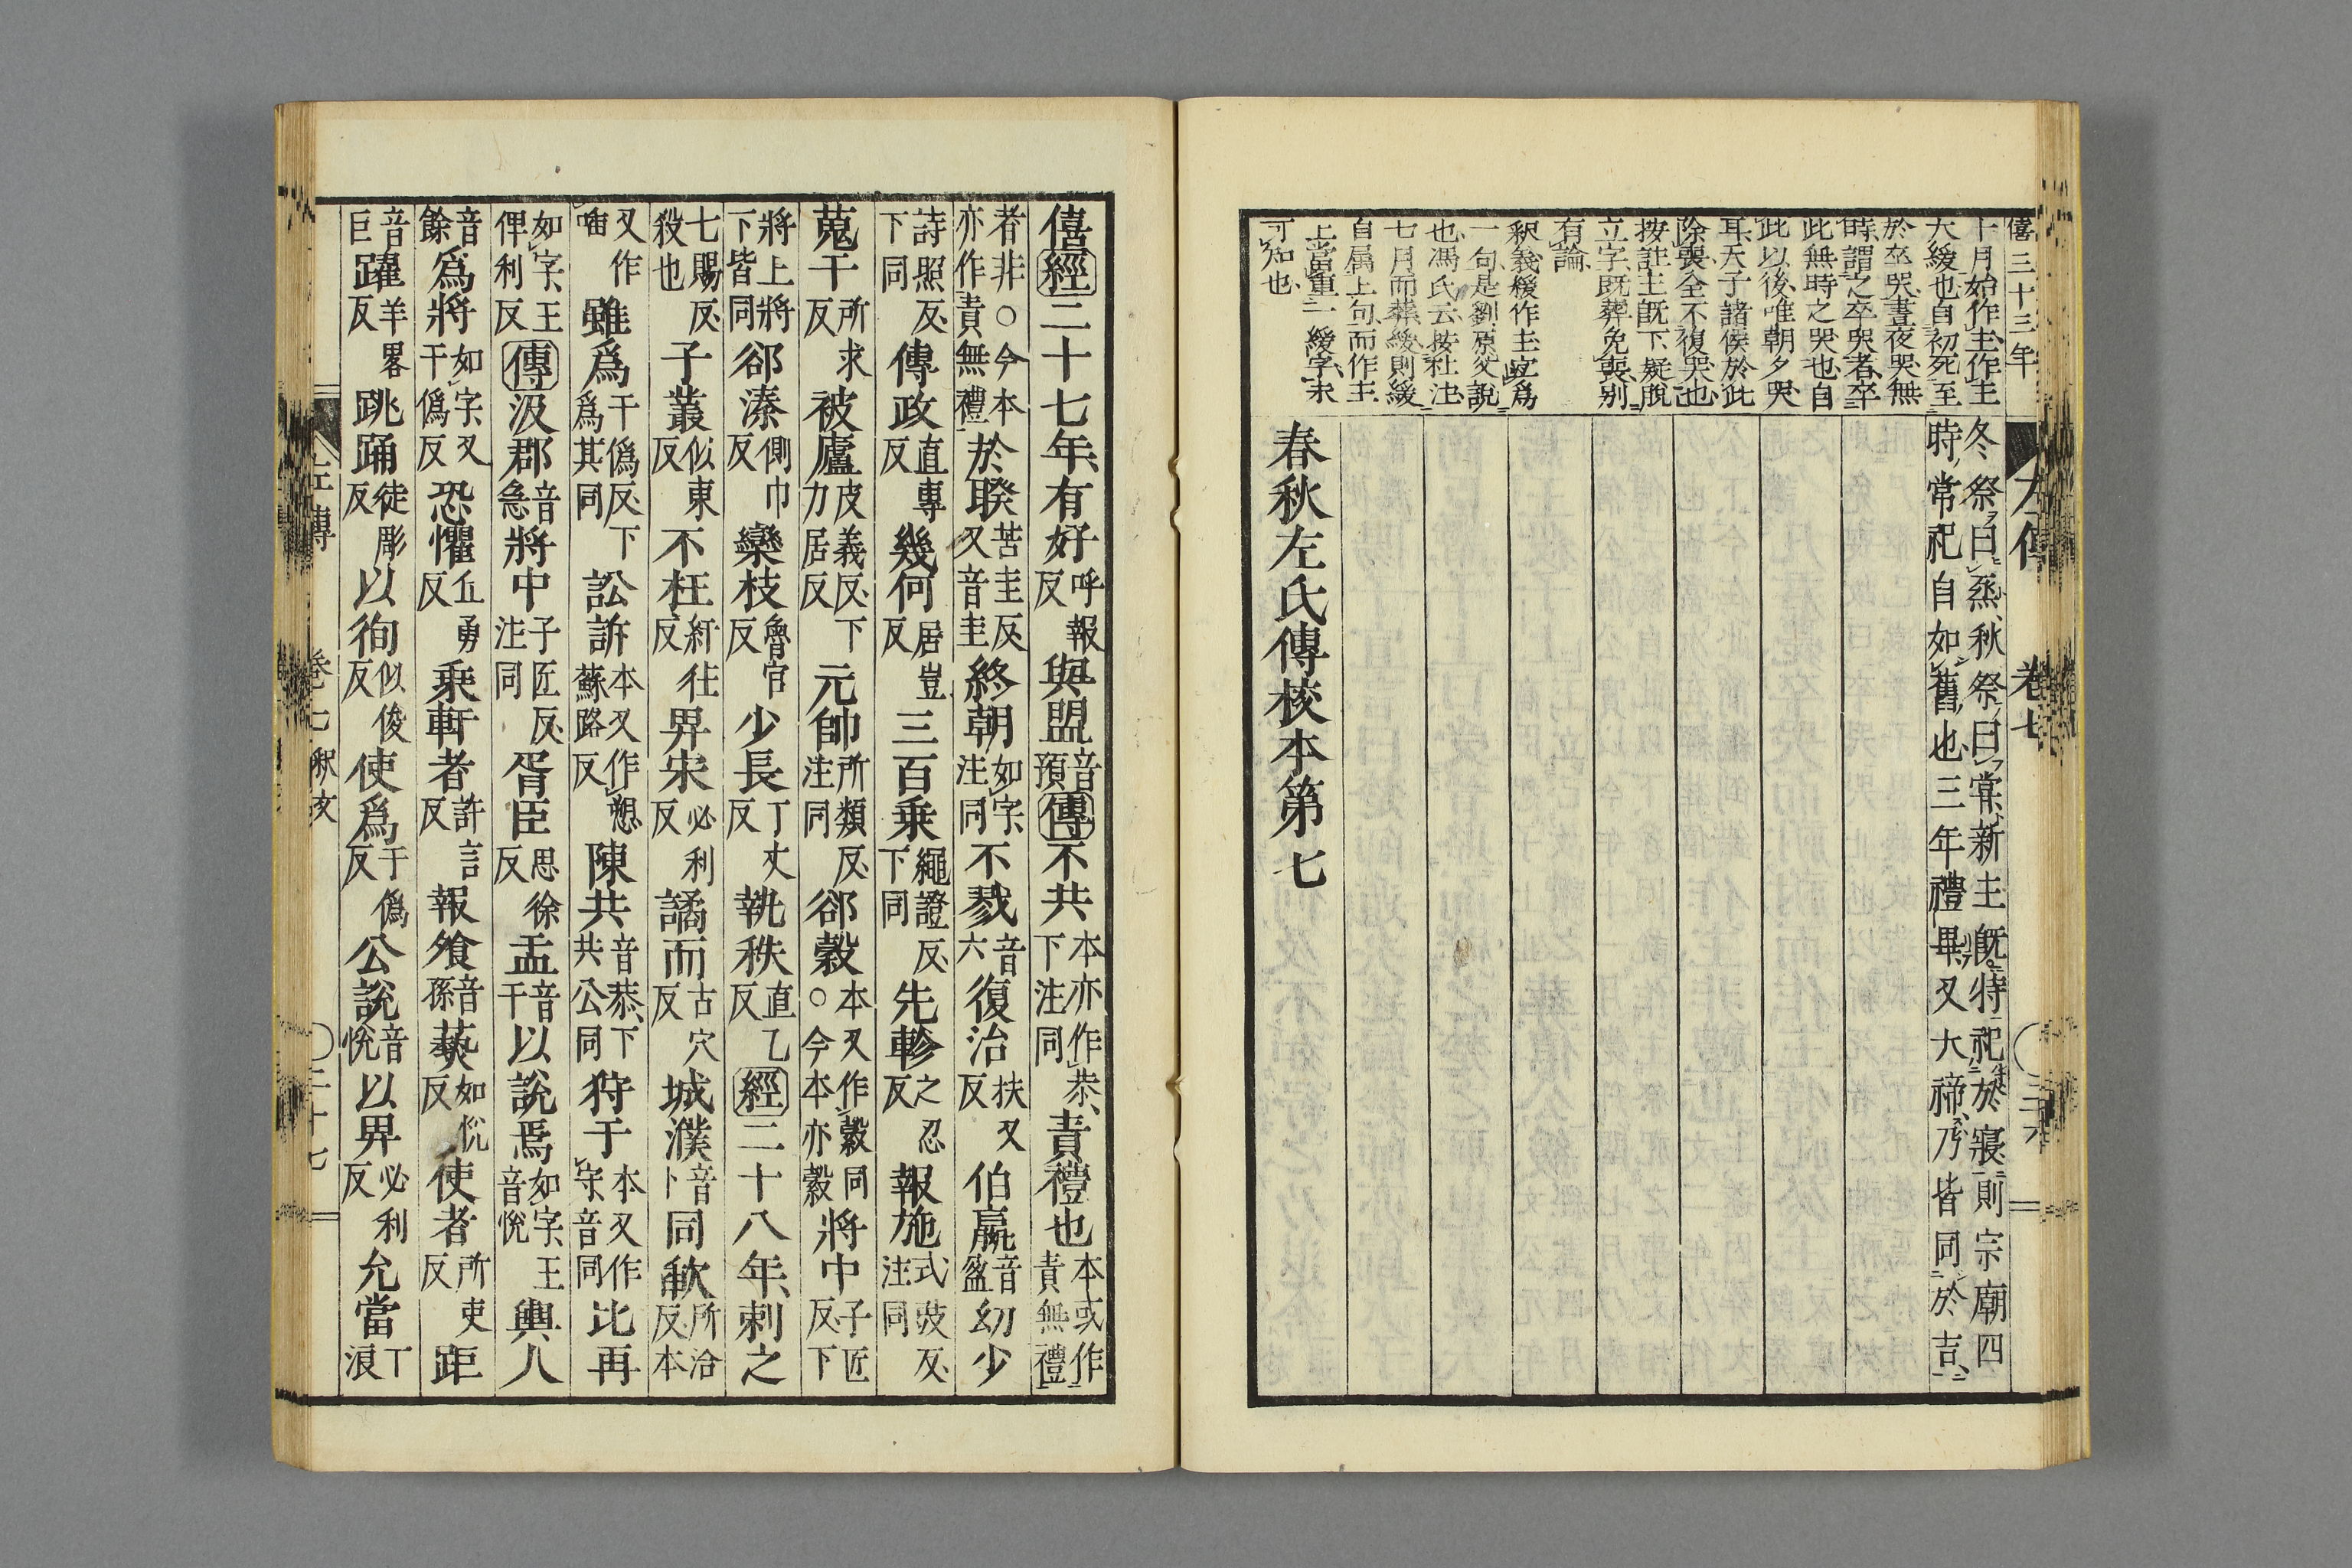 僖三十三年
十月始作主作主
大緩也自初死至
於卒哭晝夜哭無
時謂之卒哭者卒
此無時之哭也自
此以後唯朝夕哭
耳天子諸侯於此
除喪全不復哭也
按註主既下疑脫
立字既葬免喪別
有論
釈義緩作主宜爲
一句是劉原父說
也馮氏云按杜注
七月而葬緩則緩
自属上句而作主
上當重一緩字未
可知也
冬祭曰烝秋祭曰嘗新主既特祀於寢則宗廟四
時常祀自如舊也三年禮畢又大禘乃皆同於吉
春秋左氏傳校本第七
僖經二十七年有好呼報反與盟音預傳不共本亦作恭下注同責禮也本或作責無禮
者非○今本亦作責無禮於睽苦圭反又音圭終朝如字注同不戮音六復治扶又反伯嬴音盈幼少
詩照反下同傳政直專反幾何居豈反三百乗繩證反下同先軫之忍反報施式豉反注同
蒐于所求反被廬皮義反下力居反元帥所類反注同郤縠本又作縠同○今本亦縠將中子匠反下
將上將下皆同郤溱側巾反欒枝魯官反少長丁丈反執秩直乙反經二十八年刺之
七賜反殺也子叢似東反不枉紆往反畀宋必利反譎而古穴反城濮音卜同歃所洽反本
又作雖爲于偽反下爲其同訟訴本又作愬蘇路反陳共音恭下共公同狩于本又作守音同比再
如字王俾利反傳汲郡音急將中子匠反注同胥臣思徐反盂音于以說焉如字王音悅輿人
音餘爲將如字又于偽反恐懼丘勇反乗軒者許言反報飧音孫爇如悅反使者所吏反距
音巨躍羊畧反跳踊徒彫反以徇似俊反使爲于偽反公說音悅以畀必利反允當丁浪
左傳 卷七 釈文 ○三十七